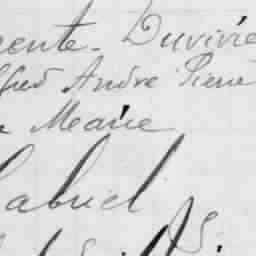 ente. Duvivie
fred André Pierre
Marie
Gabriel